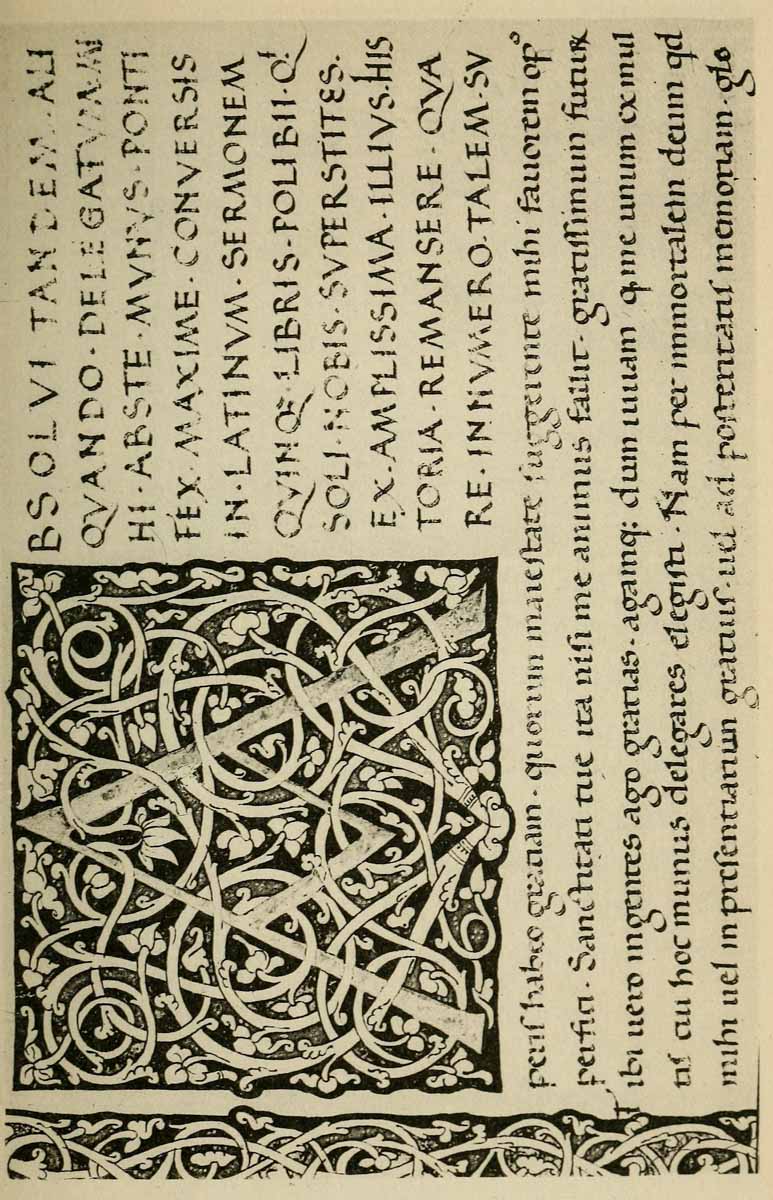 BSOLVI TANDEM·ALI
QVANDO·DELEGATVM·MI
HI·ABSTE·MVNVS·PONTI
FEX·MAXIME·CONVERSIS
IN·LATINVM·SERMONEM
QVINQ·LIBRIS·POLIBII·Q
SOLI·NOBIS·SVPERSTITES·
EX·AMPLISSIMA·ILLIVS·HIS
TORIA·REMANSERE·QVA
RE·INNVMERO·TALEM·SV
peris habeo gratiam· quorum maiestate suggerente mihi fauorem opº
perfici· Sanctitati tue ita nisi me animus fallit· gratissimum futurꝝ
Tibi uero ingentes ago gratias· agamq; dum uiuam q me unum ex mul
tis cui hoc munus delegares elegisti· Nam per immortalem deum qd
mihi uel in presentiarum gratius· uel ad posteritatis memoriam· glo